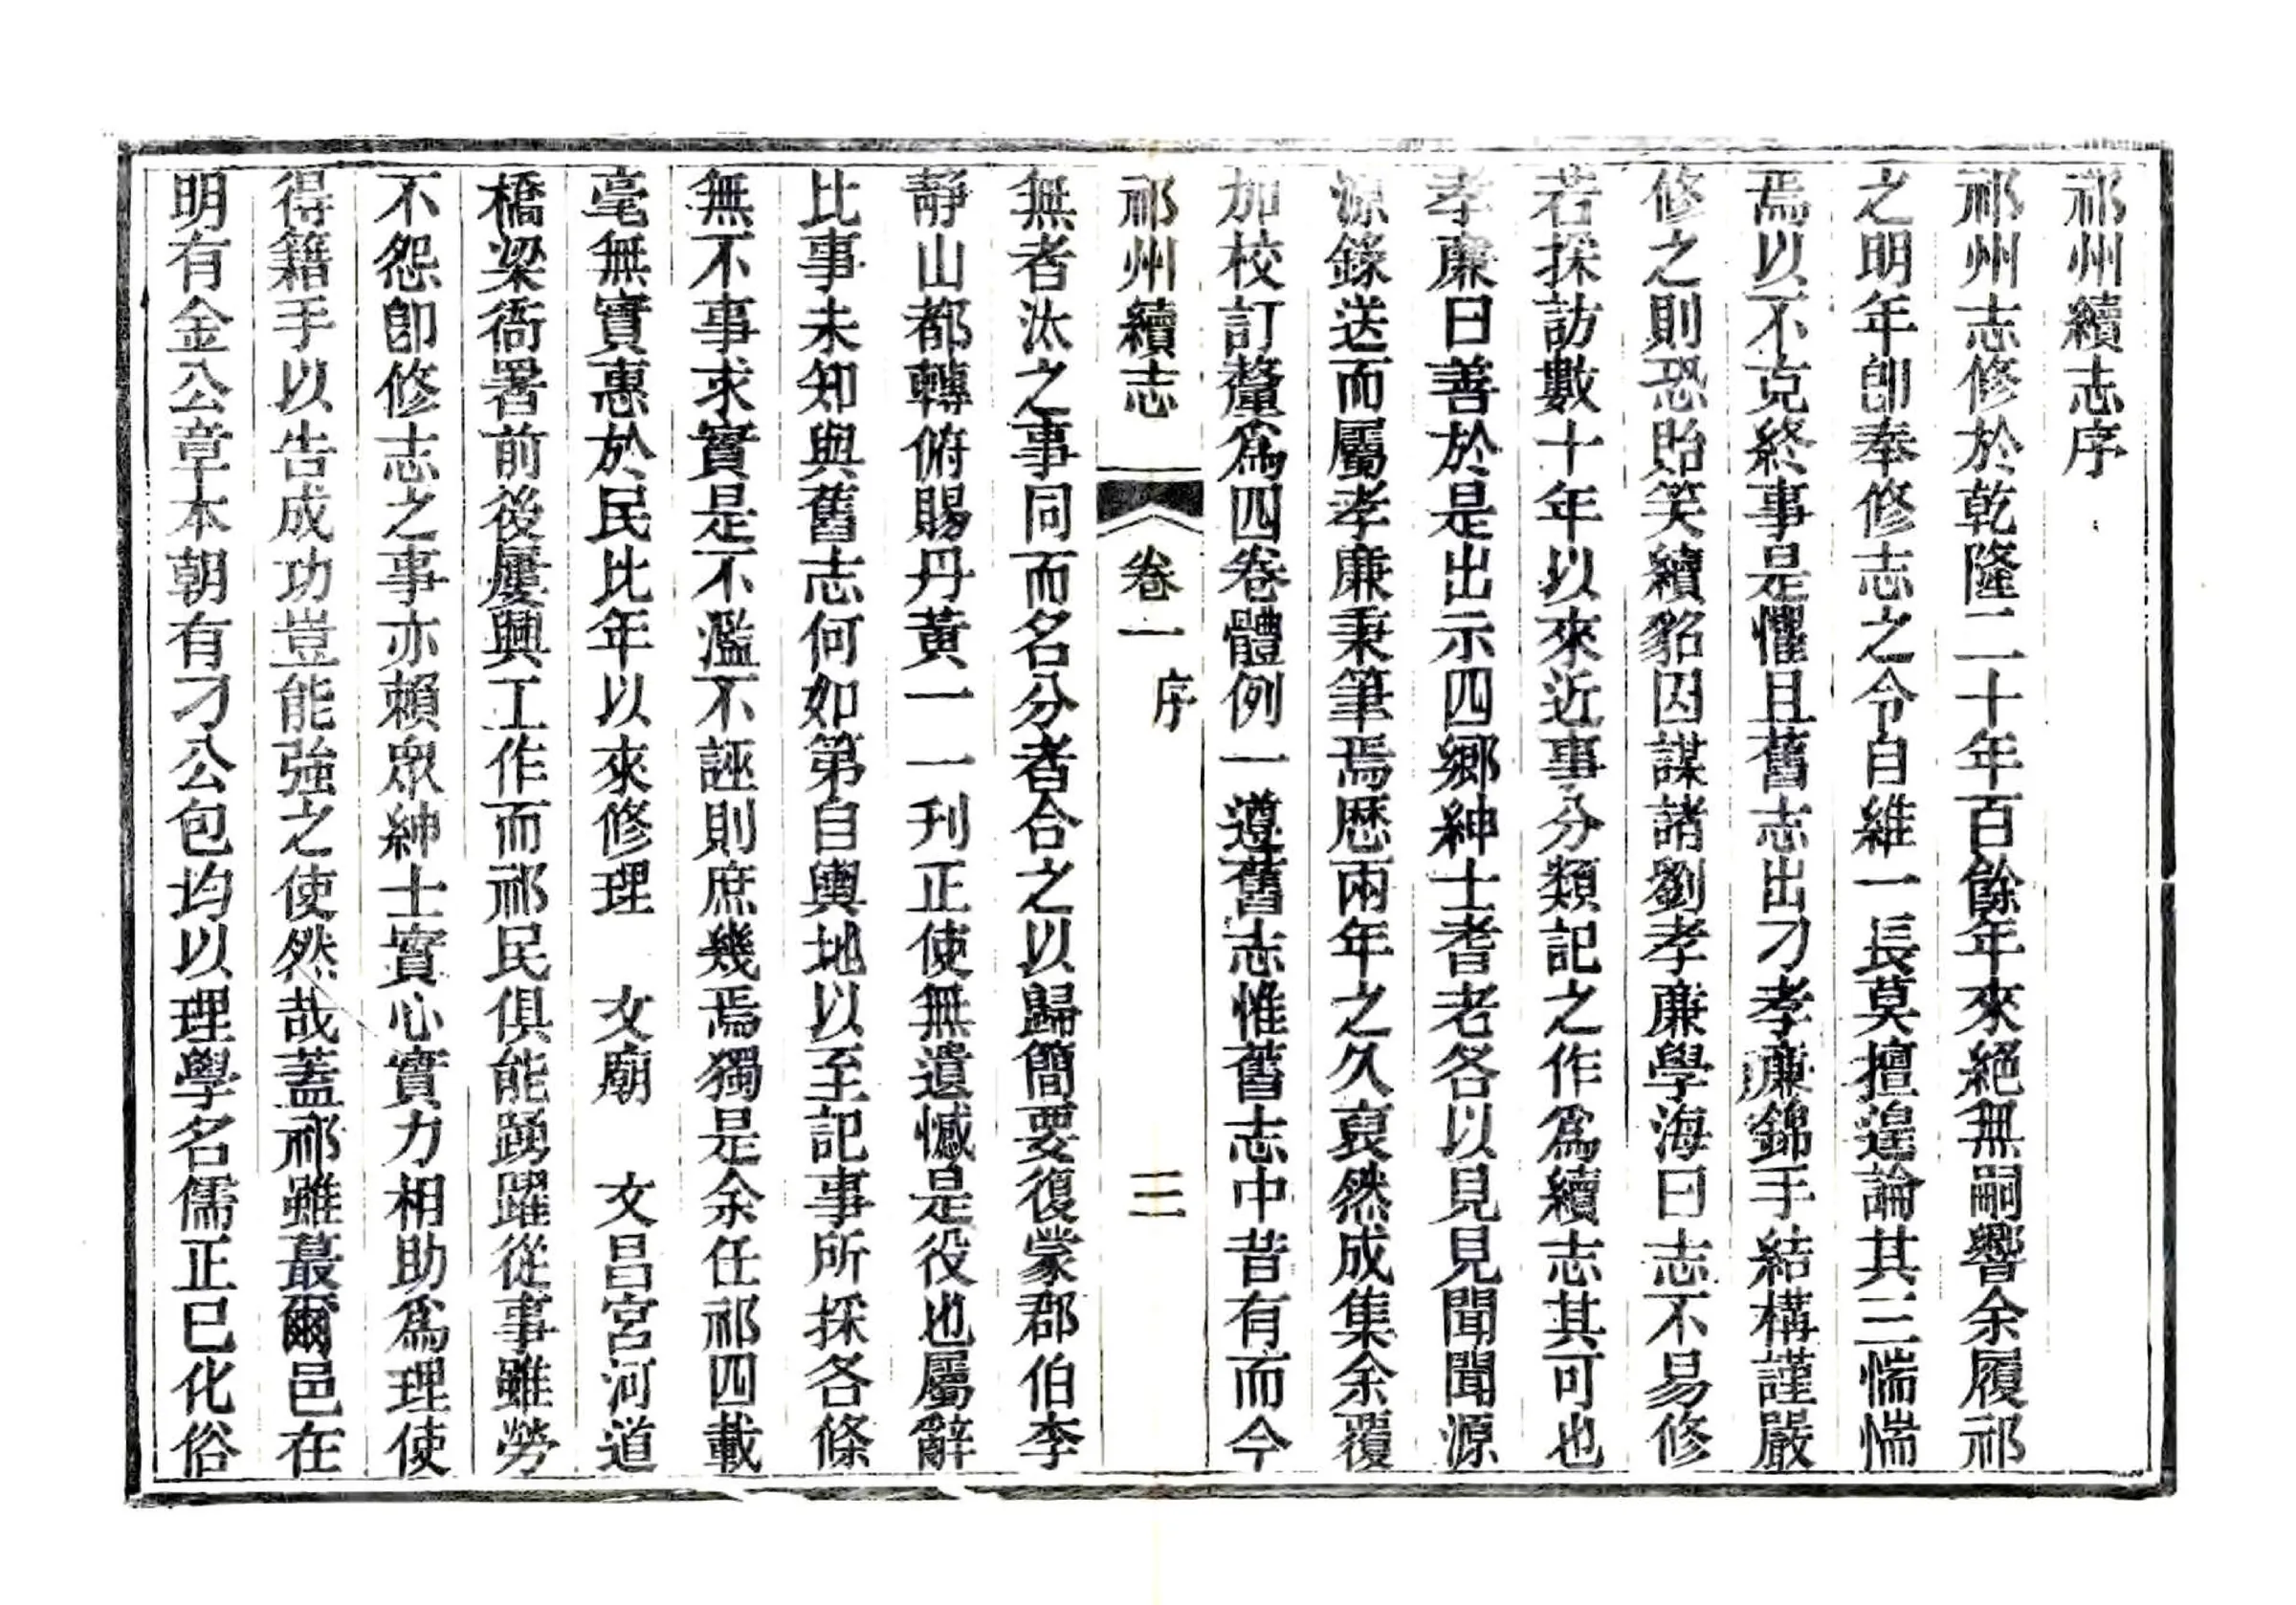 祁州續志序
祁州志修於乾隆二十年百餘年來絕無嗣響余履祁
之明年卽奉修志之令自維一長莫擅遑論其三惴惴
焉以不克終事是懼且舊志出刁孝廉錦手結構謹嚴
修之則恐貽笑續貂因謀諸劉孝廉學海曰志不易修
若採訪數十年以來近事分類記之作爲續志其可也
孝廉曰善於是出示四鄉紳士耆老各以見見聞聞源
源錄送而屬孝廉秉筆焉歷兩年之久裒然成集余覆
加校訂釐爲四卷體例一遵舊志惟舊志中昔有而今
祁州續志
卷一
序
三
無者汰之事同而名分者合之以歸簡要復蒙郡伯李
靜山都轉俯賜丹黃一一刋正使無遺憾是役也屬辭
比事未知與舊志何如第自輿地以至記事所採各條
無不事求實是不濫不誣則庶幾焉獨是余任祁四載
毫無實惠於民比年以來修理　文廟　文昌宮河道
橋梁衙署前後屢興工作而祁民俱能踴躍從事雖勞
不怨卽修志之事亦賴眾紳士實心實力相助爲理使
得籍手以告成功豈能強之使然哉蓋祁雖蕞爾邑在
明有金公章本朝有刁公包均以理學名儒正已化俗